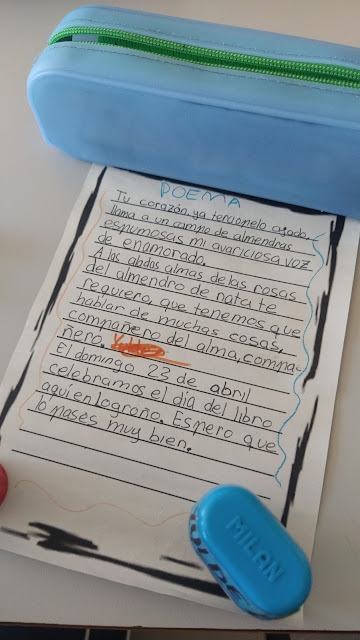 POEMA
Tu corazón, ya terciopelo ajado,
llama a un campo de almendras
espumosas mi avariciosa voz
de enamorado.
A las aladas almas de las rosas
del almendro de nata te
requiero, que tenemos que
hablar de muchas cosas,
compañero del alma, compa-
ñero.
El domingo 23 de abril
celebramos el día del libro
aquí en logroño. Espero que
lo pases muy bien.
MILAN